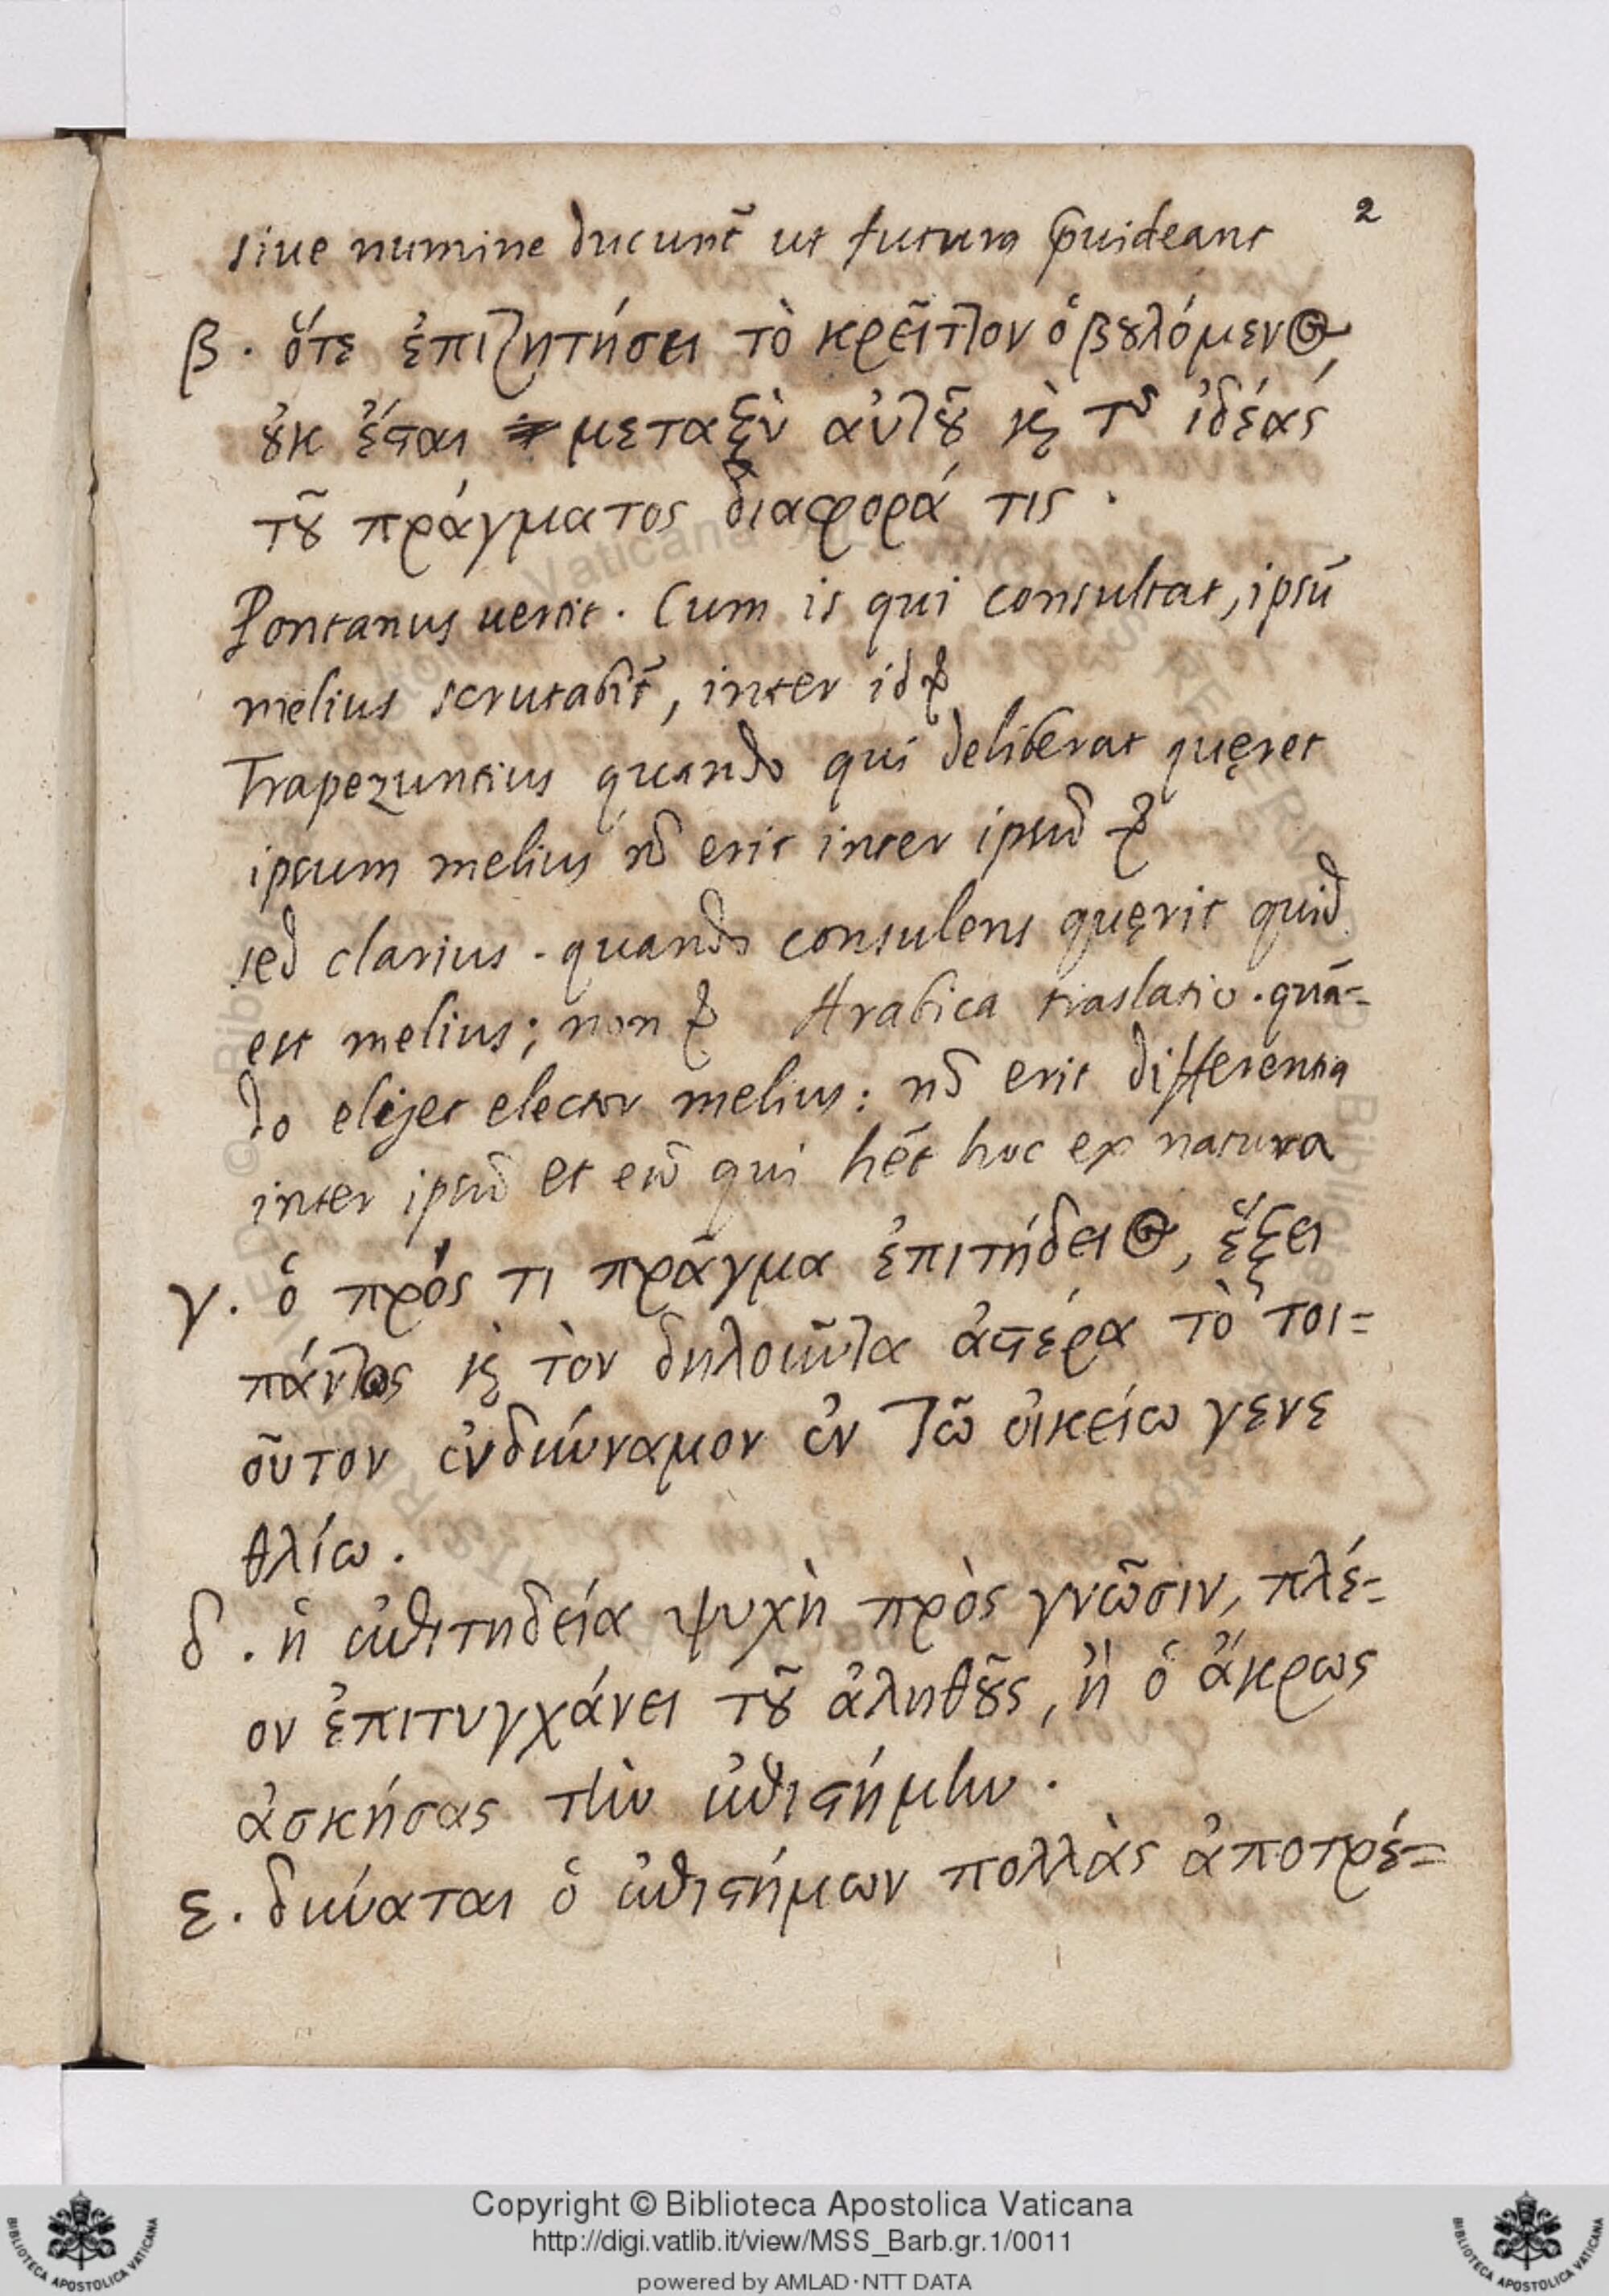 2
siue numine ducunt̃ ut futura p̃uideant
β. ὅτε ἐπιζητήσει τὸ κρεῖττον ὁ βȣλόμενος,
ȣ̓κ ἔϛαι μεταξὺ αὐτȣ͂ κὶ τῆς ἰδέας
τȣ͂ πράγματος διαφορά τις.
Pontanus uertit. Cum is qui consultat, ipsũ
melius scrutabit̃, inter id &
Trapezuntius quando qui deliberat quęret
ipsum melius nõ erit inter ipsũ &
sed clarius. quando consulens quęrit quid
est melius; non & Arabica traslatio. quã=
do eliget elector melius: nõ erit differentia
inter ipsũ et eũ qui hẽt hoc ex natura
γ. ὁ πρός τι πρᾶγμα ἐπιτήδειος, ἕξει
πάντως κὶ τὸν δηλοῦντα ἀϛέρα τὸ τοι=
οῦτον ἐνδύναμον ἐν τῶ οἰκείω γενε
θλίω.
δ. ἡ ἐπιτηδεία ψυχὴ πρὸς γνῶσιν, πλέ=
ον ἐπιτυγχάνει τȣ͂ ἀληθȣ͂ς, ἢ ὁ ἄκρως
ἀσκήσας τὴν ἐπιϛήμην.
ε. δύναται ὁ ἐπιϛήμων πολλὰς ἀποτρέ=
Copyright © Biblioteca Apostolica Vaticana
http://digi.vatlib.it/view/MSS_Barb.gr.1/0011
powered by AMLAD·NTT DATA
BIBLIOTECA APOSTOLICA VATICANA
BIBLIOTECA APOSTOLICA VATICANA